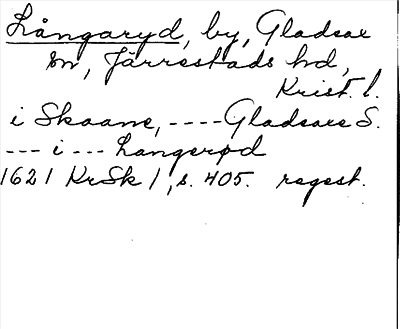 Långaryd, by, Gladsax
sn, Järrestads hd,
Krist. l.
i Skaane, ---- Gladsaxe S.
--- i --- Langerød
1621 KrSk 1, s. 405. regest.